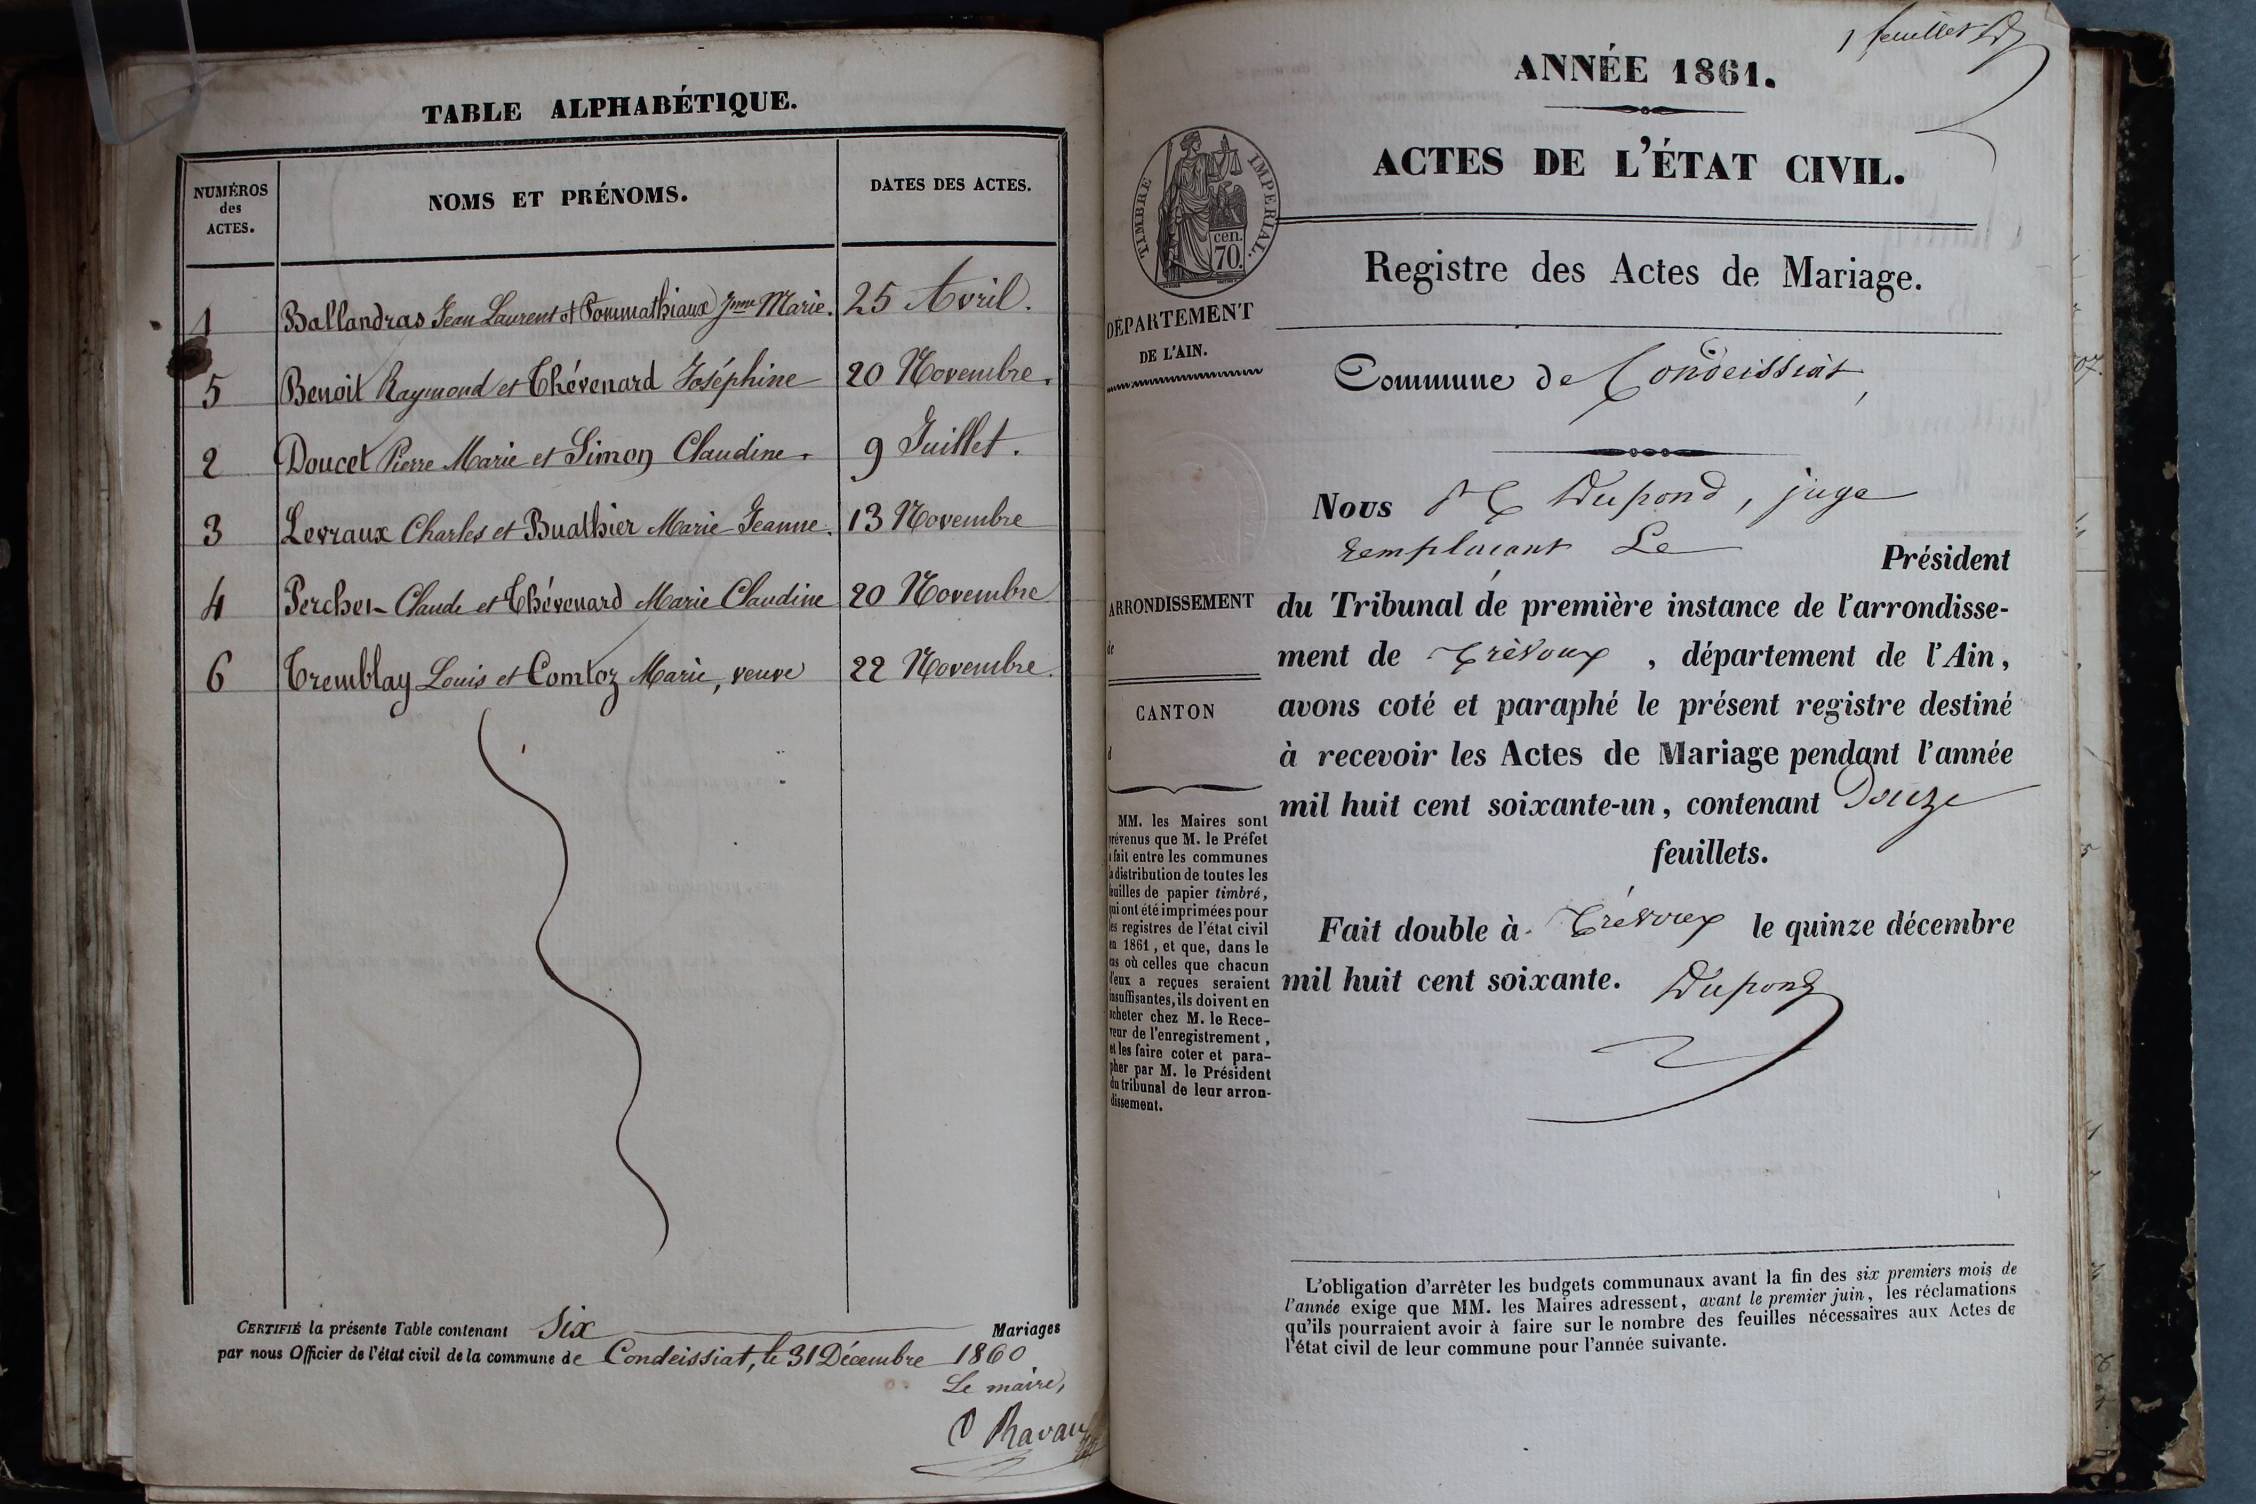 TABLE ALPHABÉTIQUE.
NUMÉROS
des
ACTES.
NOMS ET PRÉNOMS.
DATES DES ACTES.
1 Ballandras Jean Laurent et Pommathiaux Jnne Marie. 25 Avril.
5 Benoit Raymond et Thévenard Joséphine 20 Novembre.
2 Doucet Pierre Marie et Simon Claudine. 9 Juillet.
3 Levraux Charles et Buathier Marie Jeanne. 13 Novembre
4 Percher Claude et Thévenard Marie Claudine 20 Novembre
6 Tremblay Louis et Comtoz Marie, veuve 22 Novembre.
CERTIFIÉ la présente Table contenant Six Mariages
par nous Officier de l'état civil de la commune de Condeissiat, le 31 Décembre 1860
Le maire,
Ravau
1 feuillet
ANNÉE 1861.
ACTES DE L'ÉTAT CIVIL.
TIMBRE IMPÉRIAL.
cen.
70.
Registre des Actes de Mariage.
DÉPARTEMENT
DE L'AIN.
Commune de Condeissiat,
Nous Dupond, juge
remplacant Le Président
du Tribunal de première instance de l'arrondisse-
ment de Trévoux, département de l'Ain,
avons coté et paraphé le présent registre destiné
à recevoir les Actes de Mariage pendant l'année
mil huit cent soixante-un, contenant Douze
feuillets.
Fait double à Trévoux le quinze décembre
mil huit cent soixante. Dupond
ARRONDISSEMENT
de
CANTON
d
MM. les Maires sont
prévenus que M. le Préfet
a fait entre les communes
la distribution de toutes les
feuilles de papier timbré,
qui ont été imprimées pour
les registres de l'état civil
en 1861, et que, dans le
cas où celles que chacun
d'eux a reçues seraient
insuffisantes, ils doivent en
acheter chez M. le Rece-
veur de l'enregistrement,
et les faire coter et para-
pher par M. le Président
du tribunal de leur arron-
dissement.
L'obligation d'arrêter les budgets communaux avant la fin des six premiers mois de
l'année exige que MM. les Maires adressent, avant le premier juin, les réclamations
qu'ils pourraient avoir à faire sur le nombre des feuilles nécessaires aux Actes de
l'état civil de leur commune pour l'année suivante.